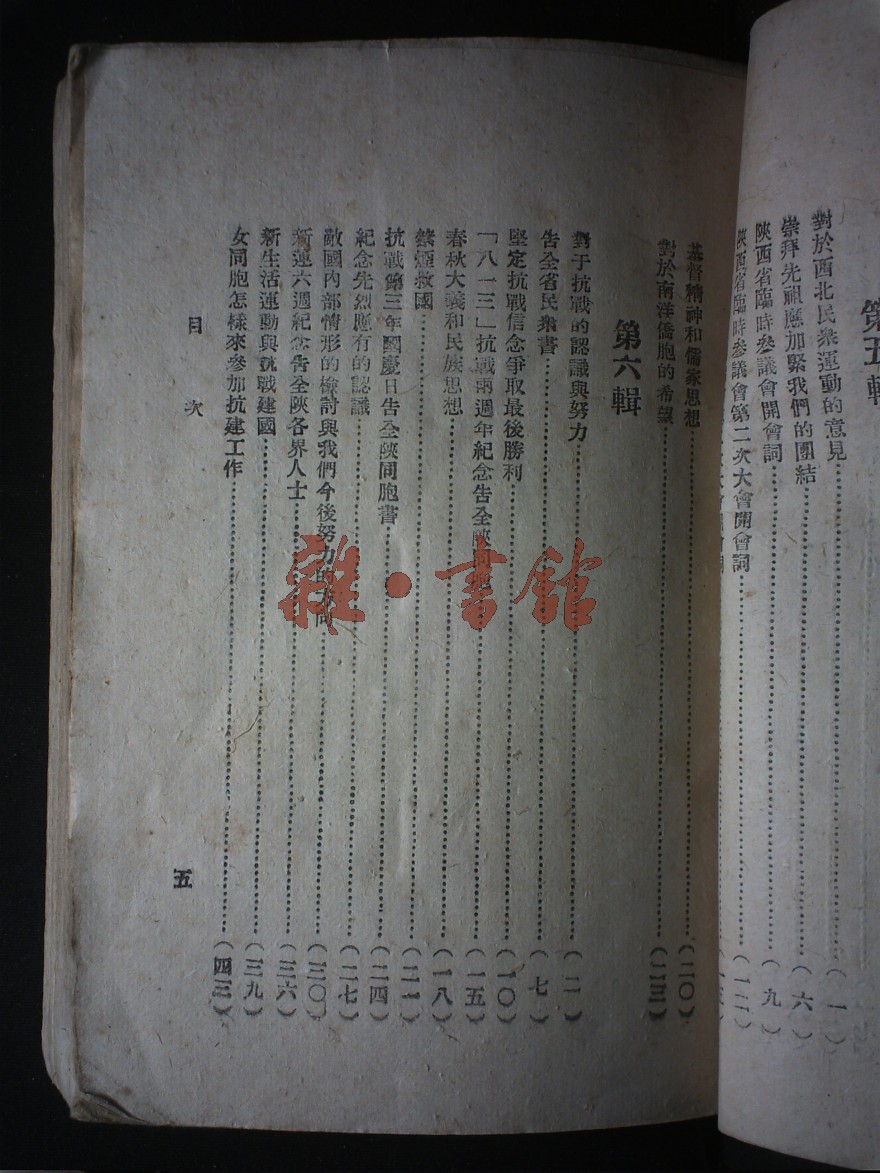 第五輯
對於西北民衆運動的意見……(一)
崇拜先祖應加緊我們的團結……(六)
陝西省臨時參議會開會詞……(九)
陝西省臨時參議會第二次大會開會詞……(一二)
基督精神和儒家思想……(二〇)
對於南洋僑胞的希望……(二三)
第六輯
對于抗戰的認識與努力……(二)
告全省民衆書……(七)
堅定抗戰信念爭取最後勝利……(一〇)
「八一三」抗戰兩週年紀念告全陝同胞……(一五)
春秋大義和民族思想……(一八)
禁煙救國……(二一)
抗戰第三年國慶日告全陝同胞書……(二四)
紀念先烈應有的認識……(二七)
敵國內部情形的檢討與我們今後努力的方向……(三〇)
新運六週紀念告全陝各界人士……(三六)
新生活運動與抗戰建國……(三九)
女同胞怎樣來參加抗建工作……(四三)
目次
五
雜·書館